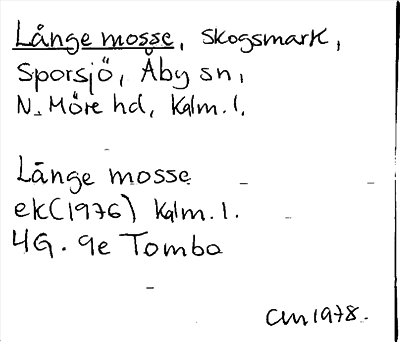 Långe mosse, skogsmark,
Sporsjö, Åby sn,
N. Möre hd, Kalm. l.
Långe mosse
ek(1976) Kalm. l.
4G. 9e Tomba
CM 1978.